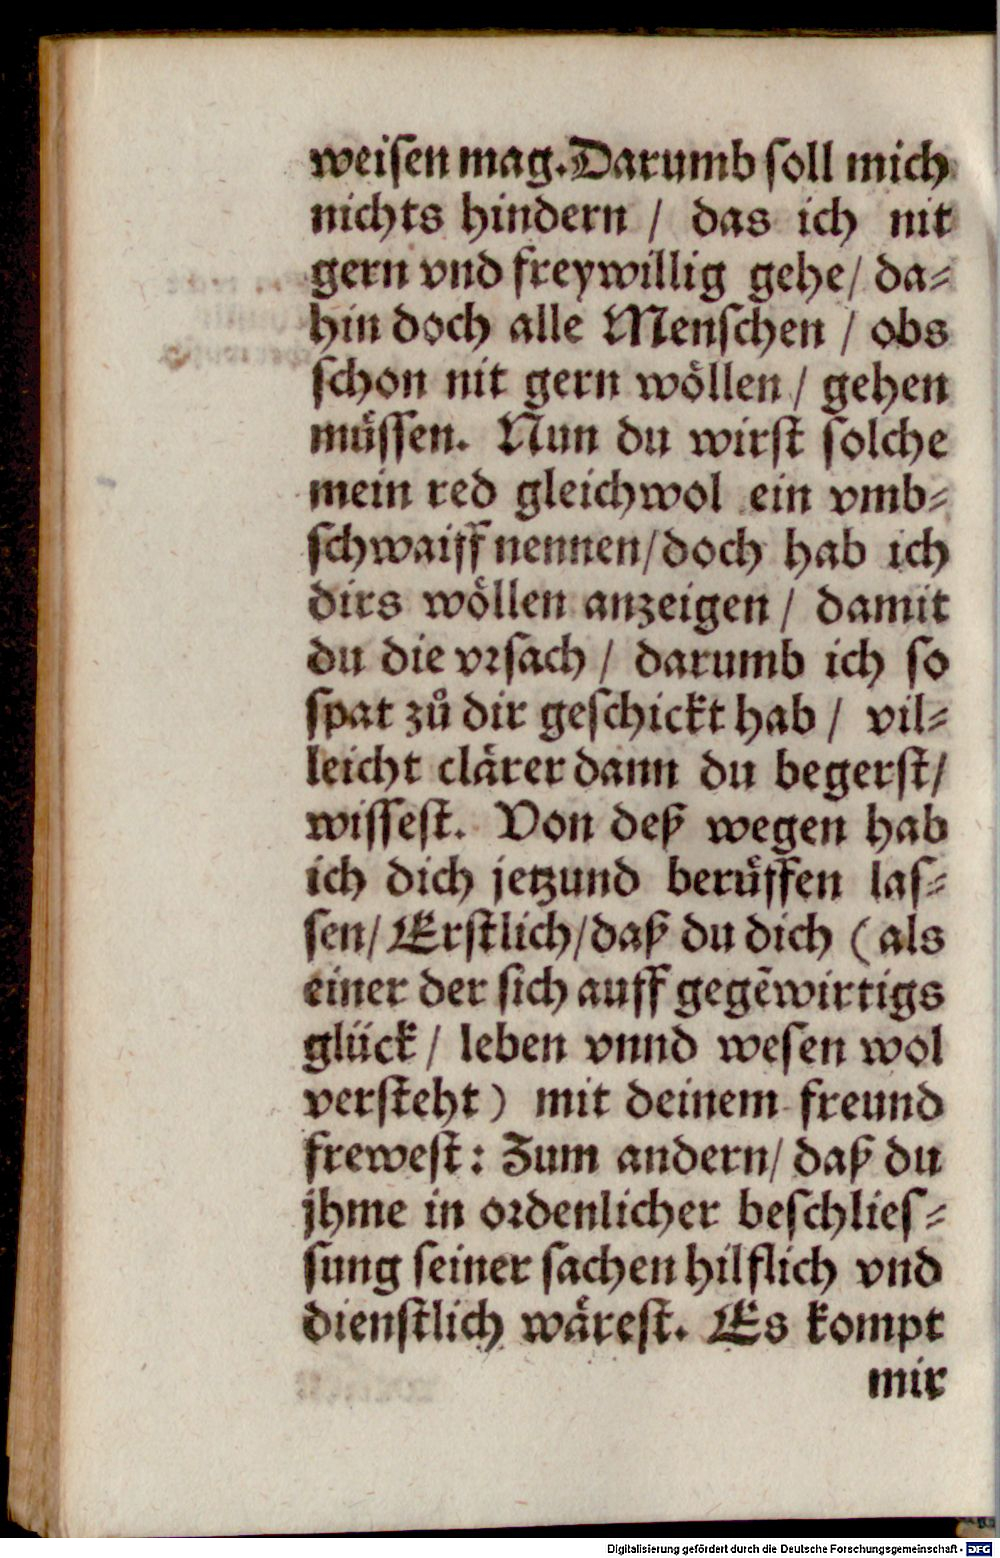 weisen mag. Darumb soll mich
nichts hindern / das ich nit
gern vnd freywillig gehe / da-
hin doch alle Menschen / obs
schon nit gern wöllen / gehen
müssen. Nun du wirst solche
mein red gleichwol ein vmb-
schwaiff nennen / doch hab ich
dirs wöllen anzeigen / damit
du die vrsach / darumb ich so
spat zů dir geschickt hab / vil-
leicht clärer dann du begerst /
wissest. Von deß wegen hab
ich dich jetzund berüffen las-
sen / Erstlich / daß du dich ( als
einer der sich auff gegẽwirtigs
glück / leben vnnd wesen wol
versteht ) mit deinem freund
frewest : Zum andern / daß du
jhme in ordenlicher beschlies-
sung seiner sachen hilflich vnd
dienstlich wärest. Es kompt
mir
Digitalisierung gefördert durch die Deutsche Forschungsgemeinschaft - DFG